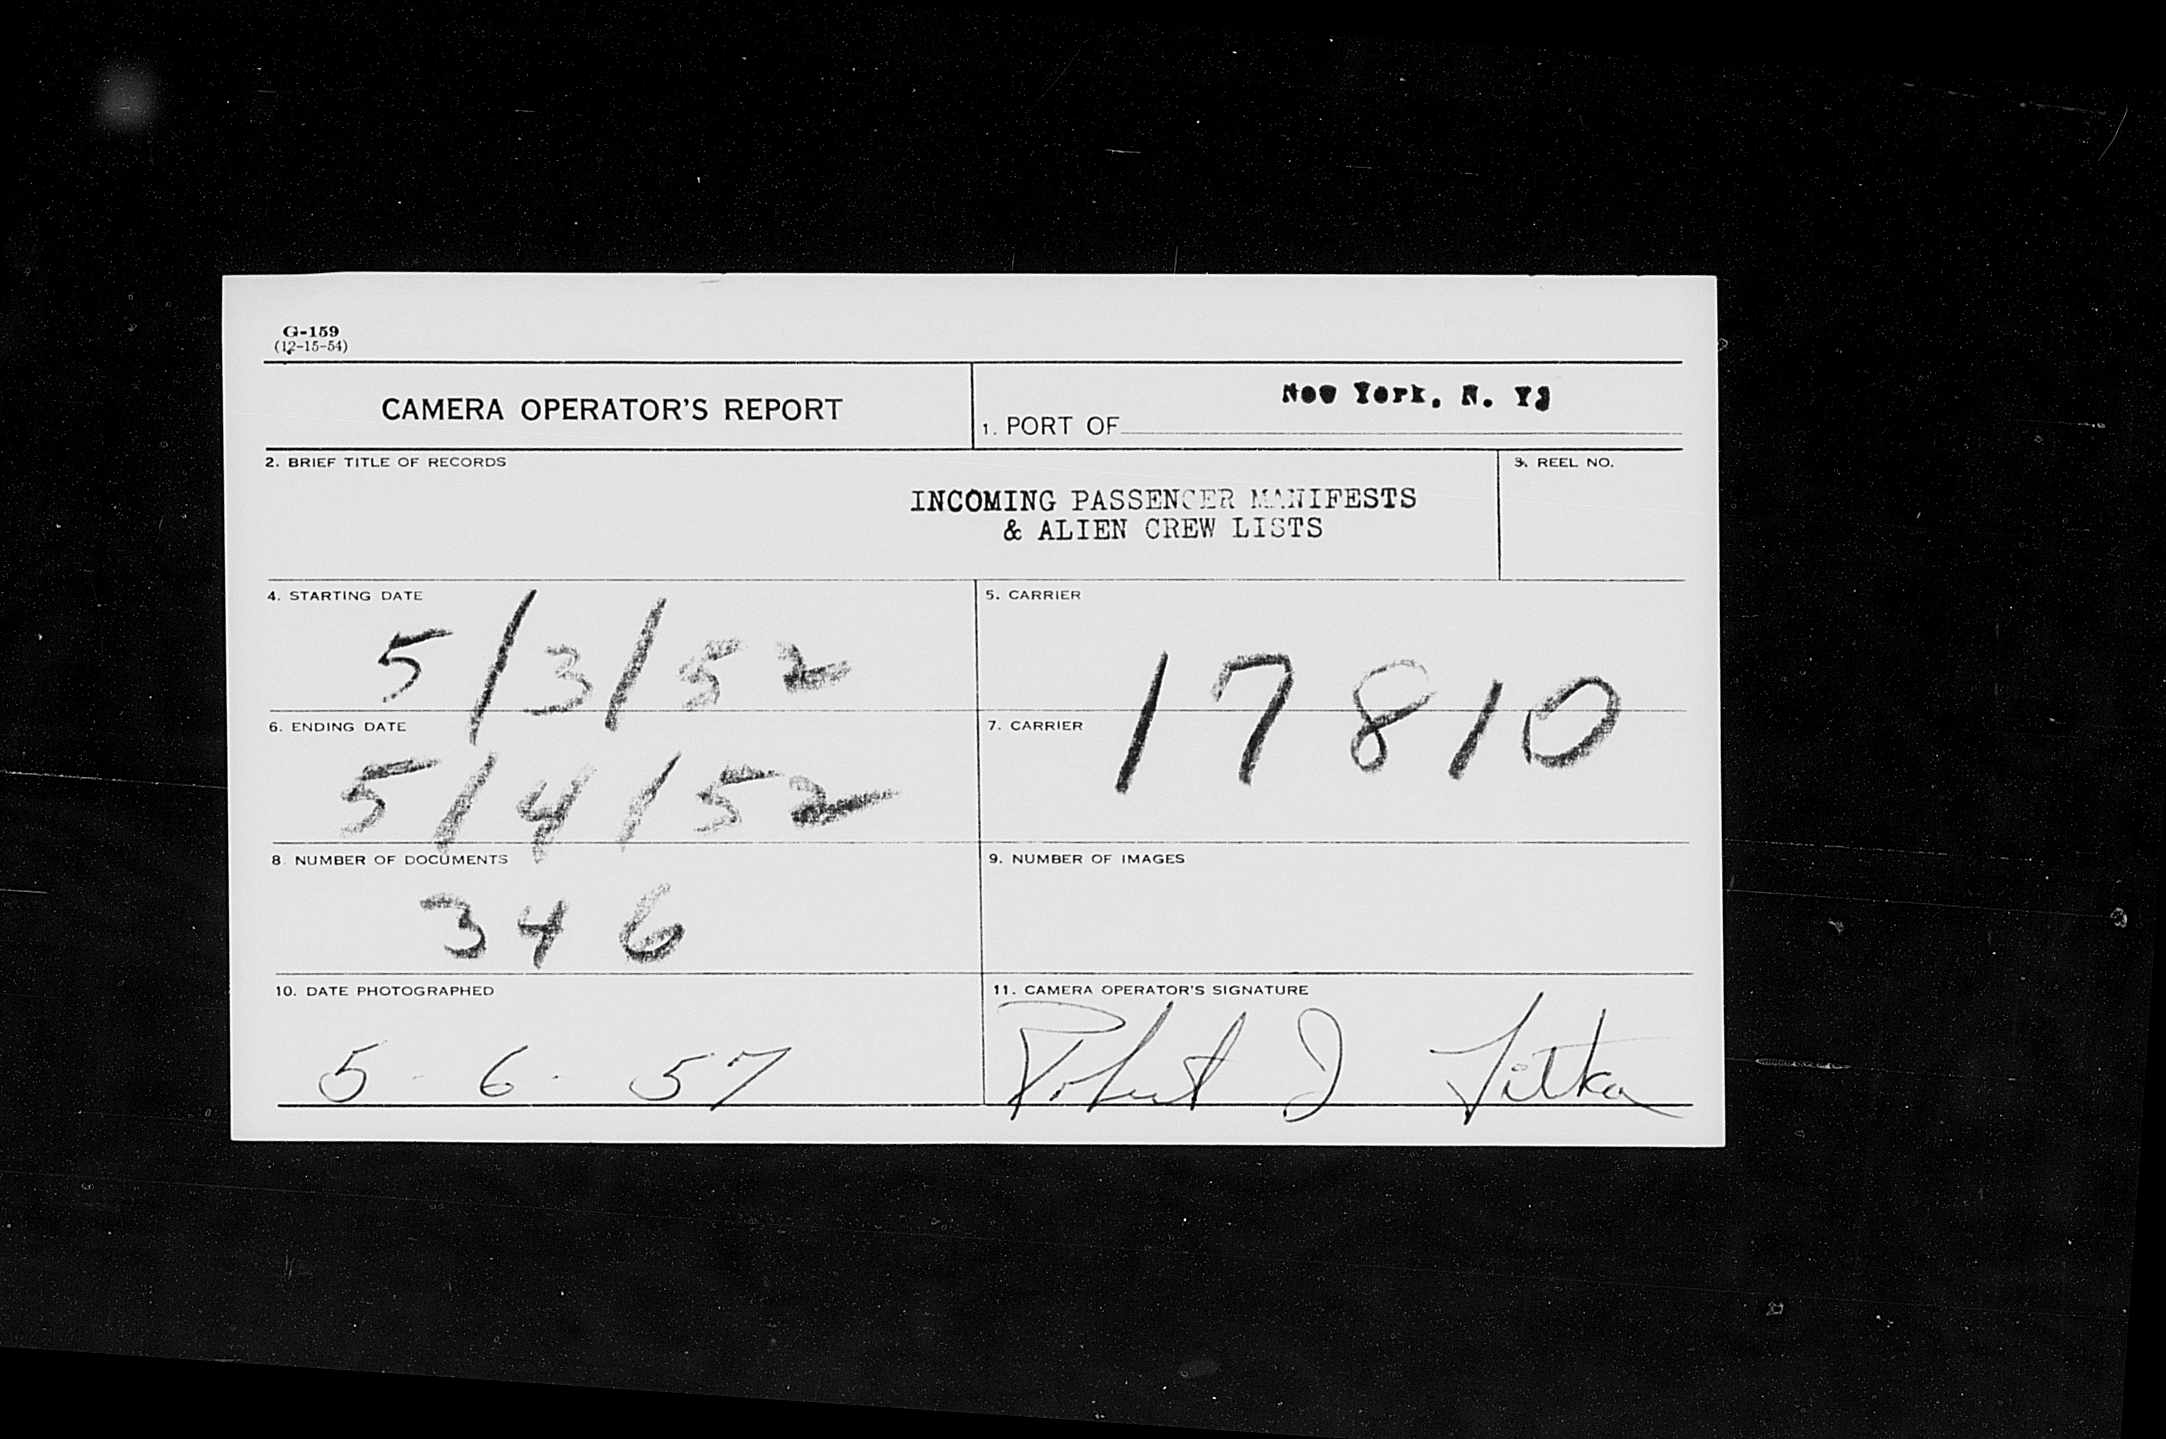 G-159
(12-15-54)
CAMERA OPERATOR'S REPORT
1. PORT OF New York, N. Y.
2. BRIEF TITLE OF RECORDS
INCOMING PASSENGER MANIFESTS
& ALIEN CREW LISTS
3. REEL NO.
4. STARTING DATE
5/3/52
5. CARRIER
17810
6. ENDING DATE
5/4/52
7. CARRIER
8. NUMBER OF DOCUMENTS
346
9. NUMBER OF IMAGES
10. DATE PHOTOGRAPHED
5-6-57
11. CAMERA OPERATOR'S SIGNATURE
Robert J